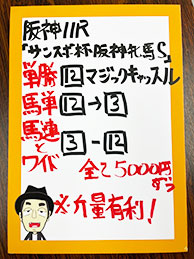 阪神11R
「サンスポ杯阪神牝馬S」
単勝 12 マジックキャッスル
馬単 12→3
馬連
と 3-12
ワイド
全て5000円
ずつ
※力量有利！